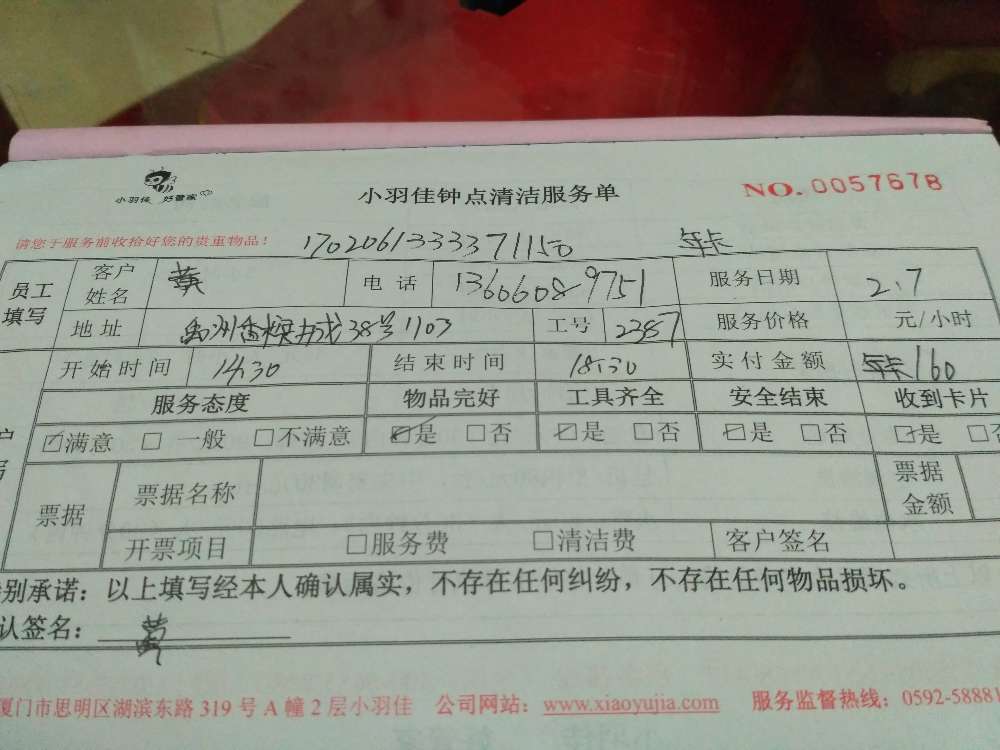 小羽佳 好管家
小羽佳钟点清洁服务单
NO.0057678
请您于服务前收拾好您的贵重物品！
年卡
员工填写 客户姓名 黄 电话 13606089751 服务日期 2.7
地址 38号1103 工号 2387 服务价格 元/小时
开始时间 14:30 结束时间 18:30 实付金额 年卡160
服务态度 物品完好 工具齐全 安全结束 收到卡片
☑满意 □一般 □不满意 ☑是 □否 ☑是 □否 ☑是 □否 ☑是 □否
票据 票据名称 票据金额
开票项目 □服务费 □清洁费 客户签名
别承诺：以上填写经本人确认属实，不存在任何纠纷，不存在任何物品损坏。
认签名：黄
厦门市思明区湖滨东路 319 号 A 幢 2 层小羽佳 公司网站：www.xiaoyujia.com 服务监督热线：0592-58881